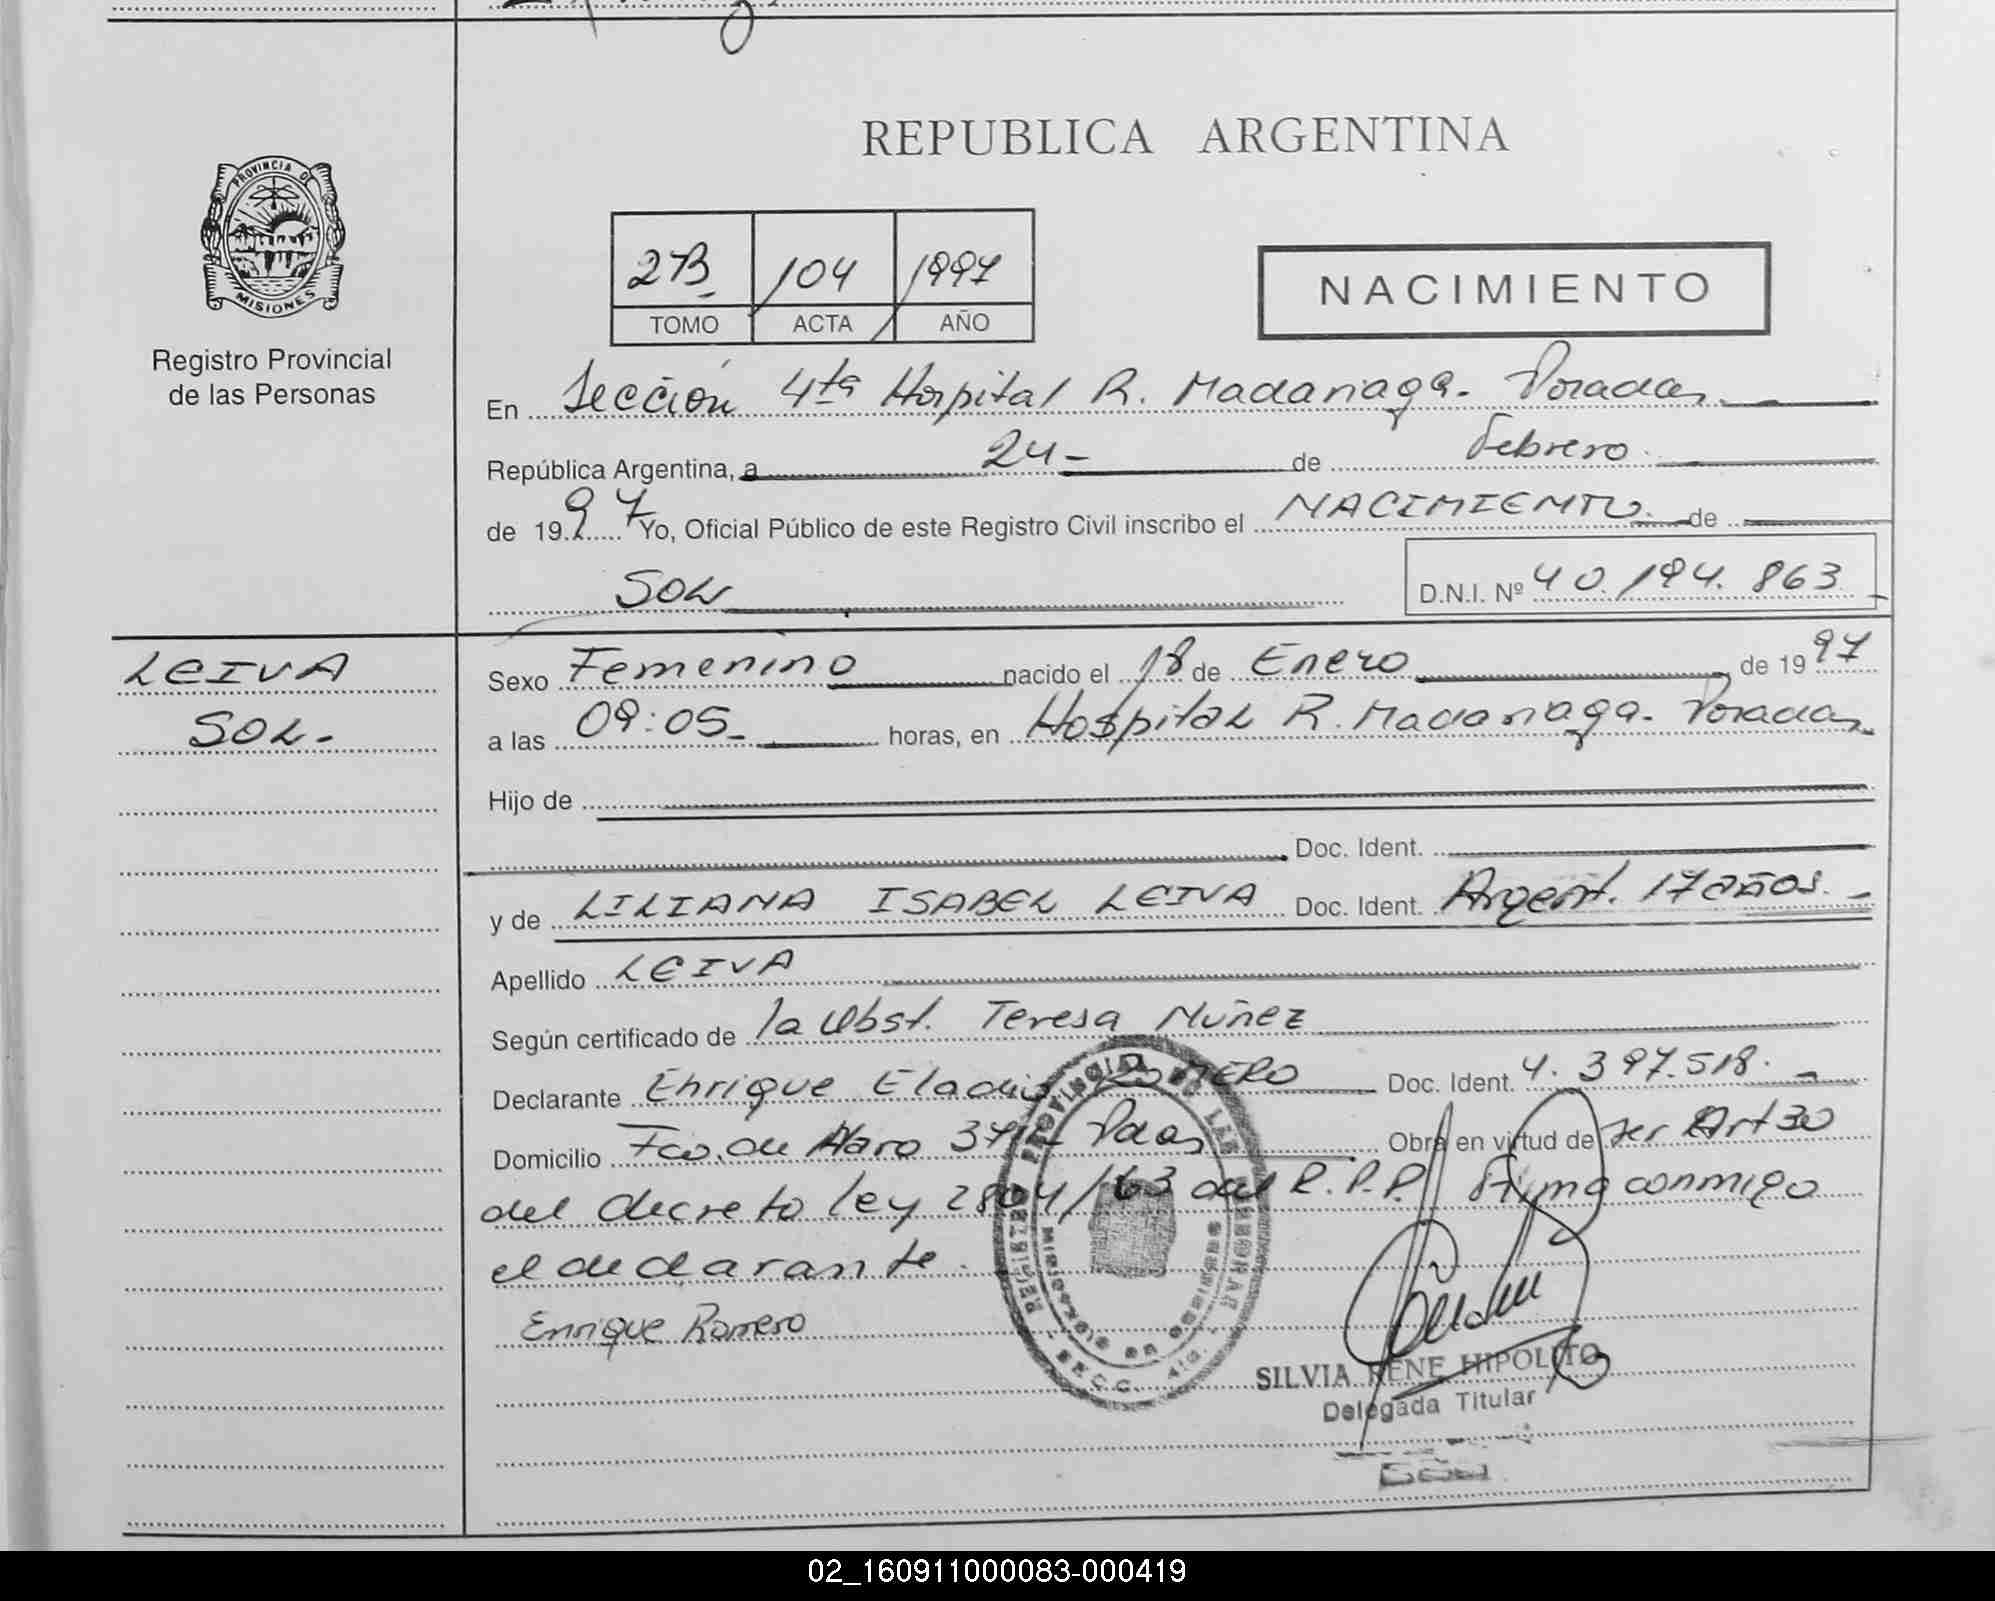 REPUBLICA ARGENTINA
PROVINCIA DE
MISIONES
Registro Provincial
de las Personas
2B 104 1997
TOMO ACTA AÑO
NACIMIENTO
En Sección 4ta Hospital R. Madariaga. Posadas
República Argentina, a 24 de Febrero
de 1997 Yo, Oficial Público de este Registro Civil inscribo el NACIMIENTO de
SOL D.N.I. Nº 40.194.863
LEIVA
SOL.
Sexo Femenino nacido el 18 de Enero de 1997
a las 09:05 horas, en Hospital R. Madariaga. Posadas
Hijo de
Doc. Ident.
y de LILIANA ISABEL LEIVA Doc. Ident. Argent. 17 años.
Apellido LEIVA
Según certificado de la Obst. Teresa Nuñez
Declarante Enrique Eladio ROMERO Doc. Ident. 4.397.518.
Domicilio Fco. de Haro Pdas Obra en virtud de ser Art 30
del decreto ley 2804/63 del R.P.P. Firma conmigo
el declarante.
Enrique Romero
SILVIA RENE HIPOLITO
Delegada Titular
02_160911000083-000419